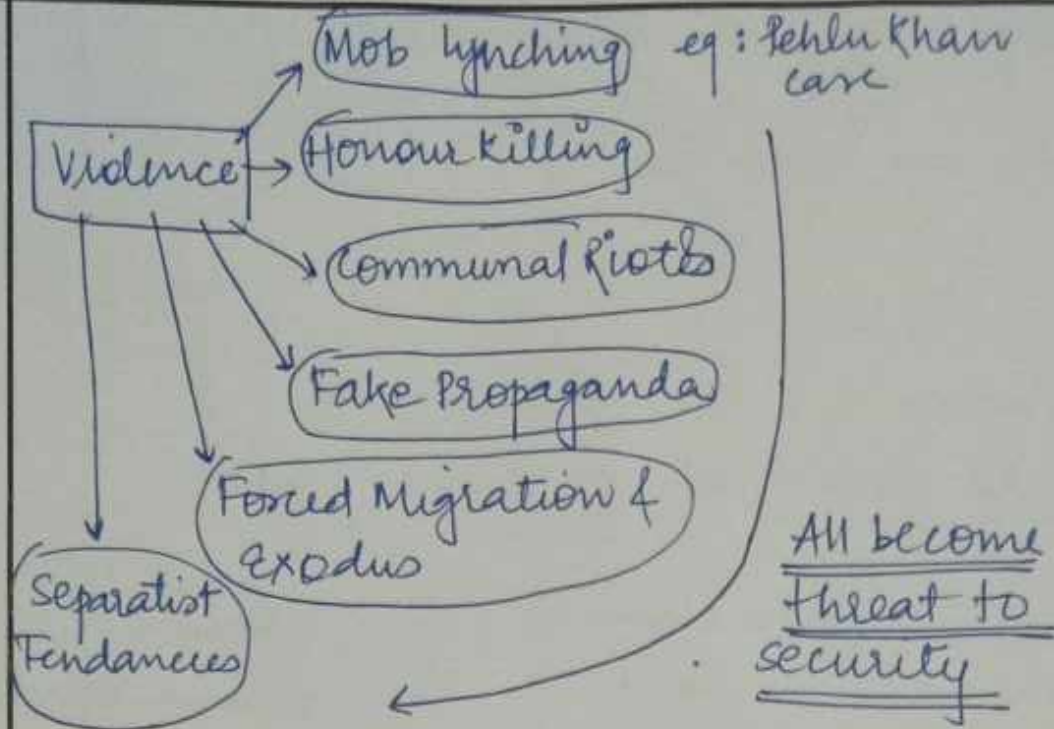 Mob Lynching eg: Pehlu Khan
case
Violence
Honour Killing
Communal Riots
Fake Propaganda
Forced Migration &
Exodus
Separatist
Tendancies
All become
threat to
security